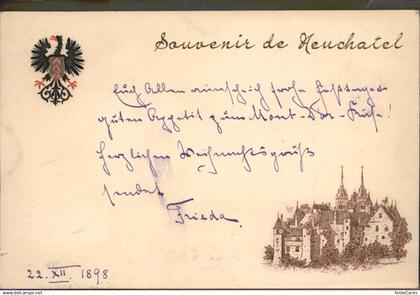 Souvenir de Neuchatel
Euch Allen wünsch ich frohe Festtage &
guten Appetit zum Mont-Dor-Käse!
Herzlichen Weihnachtsgruß
sendet
Frieda.
22. XII. 1898